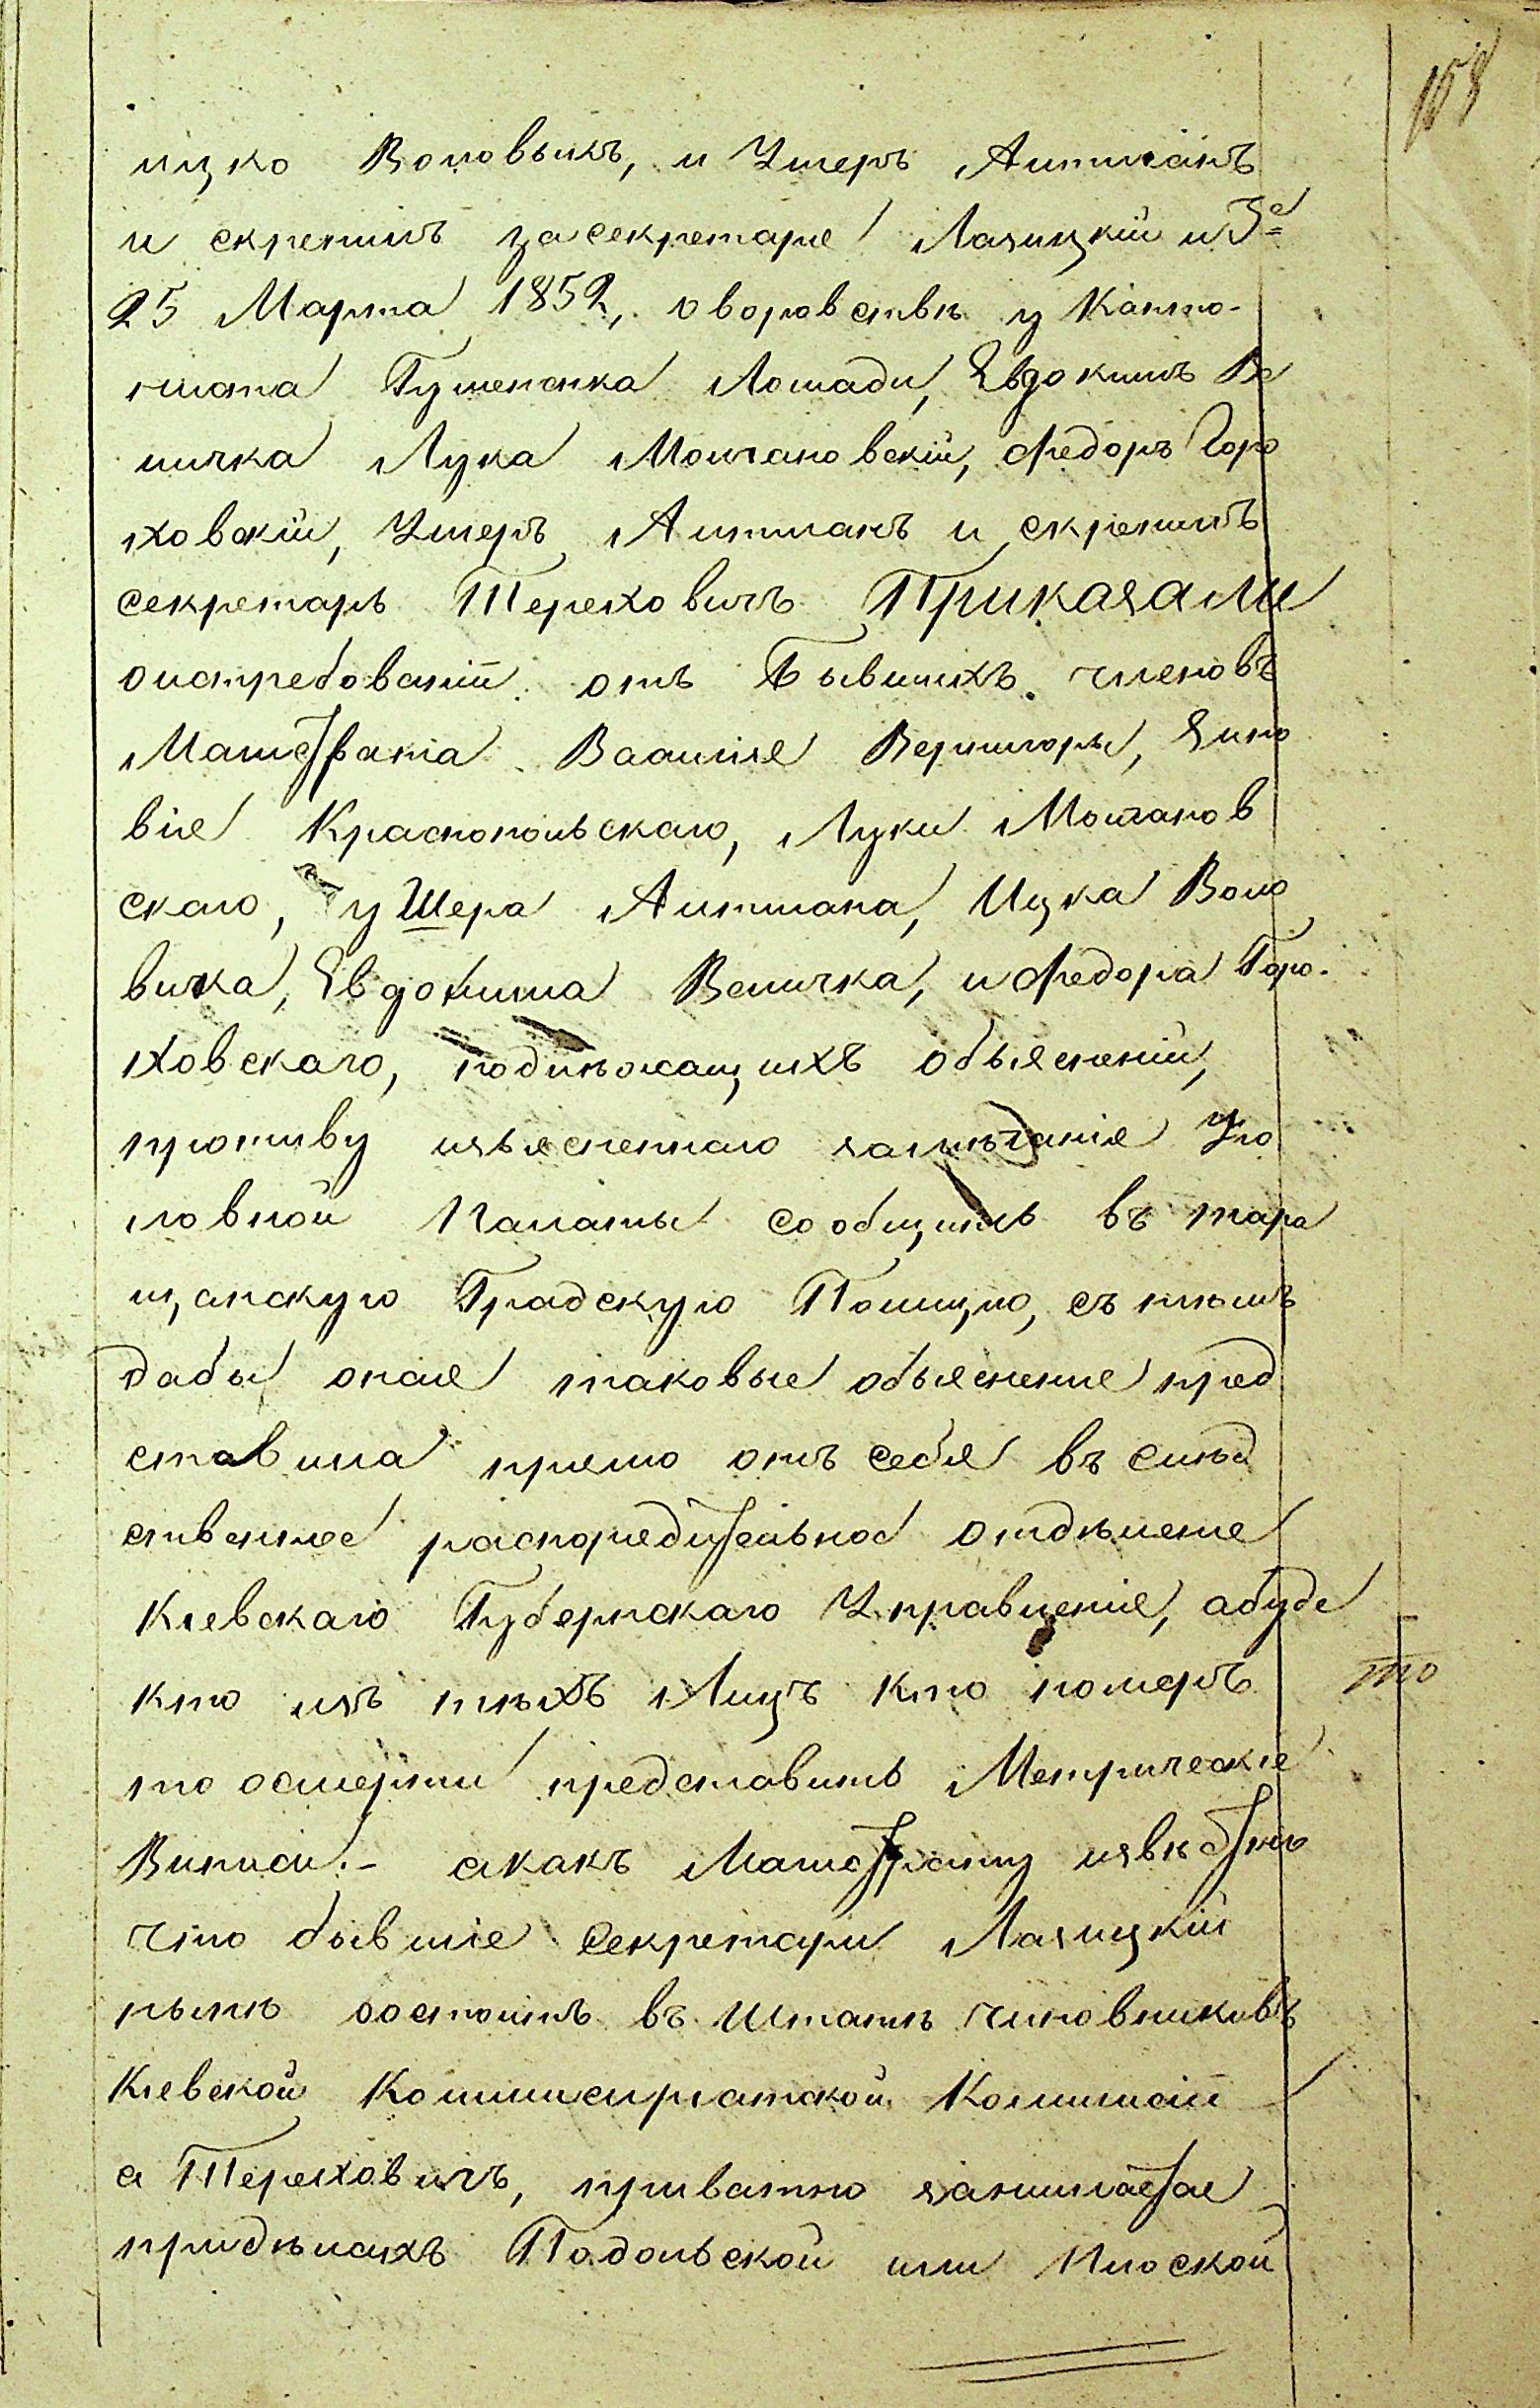 158
ицко Воловыкъ, и Ушеръ Антманъ
и скрепилъ за секретаря Лазицкій и 3е
25 Марта 1852, о воровствѣ у Канто-
ниста Гуменюка Лошади, Евдокимъ Ве
личка Лука Молчановскій, Федоръ Горо
ховскій, Ушеръ Антманъ и скрепилъ
секретарь Тереховичъ Приказали
о истребованіи отъ Бывшихъ членовъ
Магистрата Василія Вернигоры, Зино
вія Краснопольскаго, Луки Молчанов
скаго, уШера Антмана, Ицка Воло
вика, Евдокима Велички, и Федора Горо-
ховскаго, подлѣжащихъ объясненій,
противу изъясненнаго замѣчанія Уго
ловной Палаты сообщить въ тара
щанскую Градскую Полицію, съ тѣмъ
дабы оная таковые объяснение пред
ставила прямо отъ себя въ слѣд
ственное распоредительное отдѣление
Киевскаго Губернскаго Управления, а буде
кто изъ тѣхъ Лицъ кто померъ то
то о смерти представить Метрическіе
Виписи. - а какъ Магистрату извѣстно
что бывшіе Секретари Лазицкій
нынѣ состоитъ въ Штатѣ чиновниковъ
Киевской Коммисиріатской Коммисіи
а Тереховичъ, приватно занимается
при дѣлахъ Подольской или Плоской